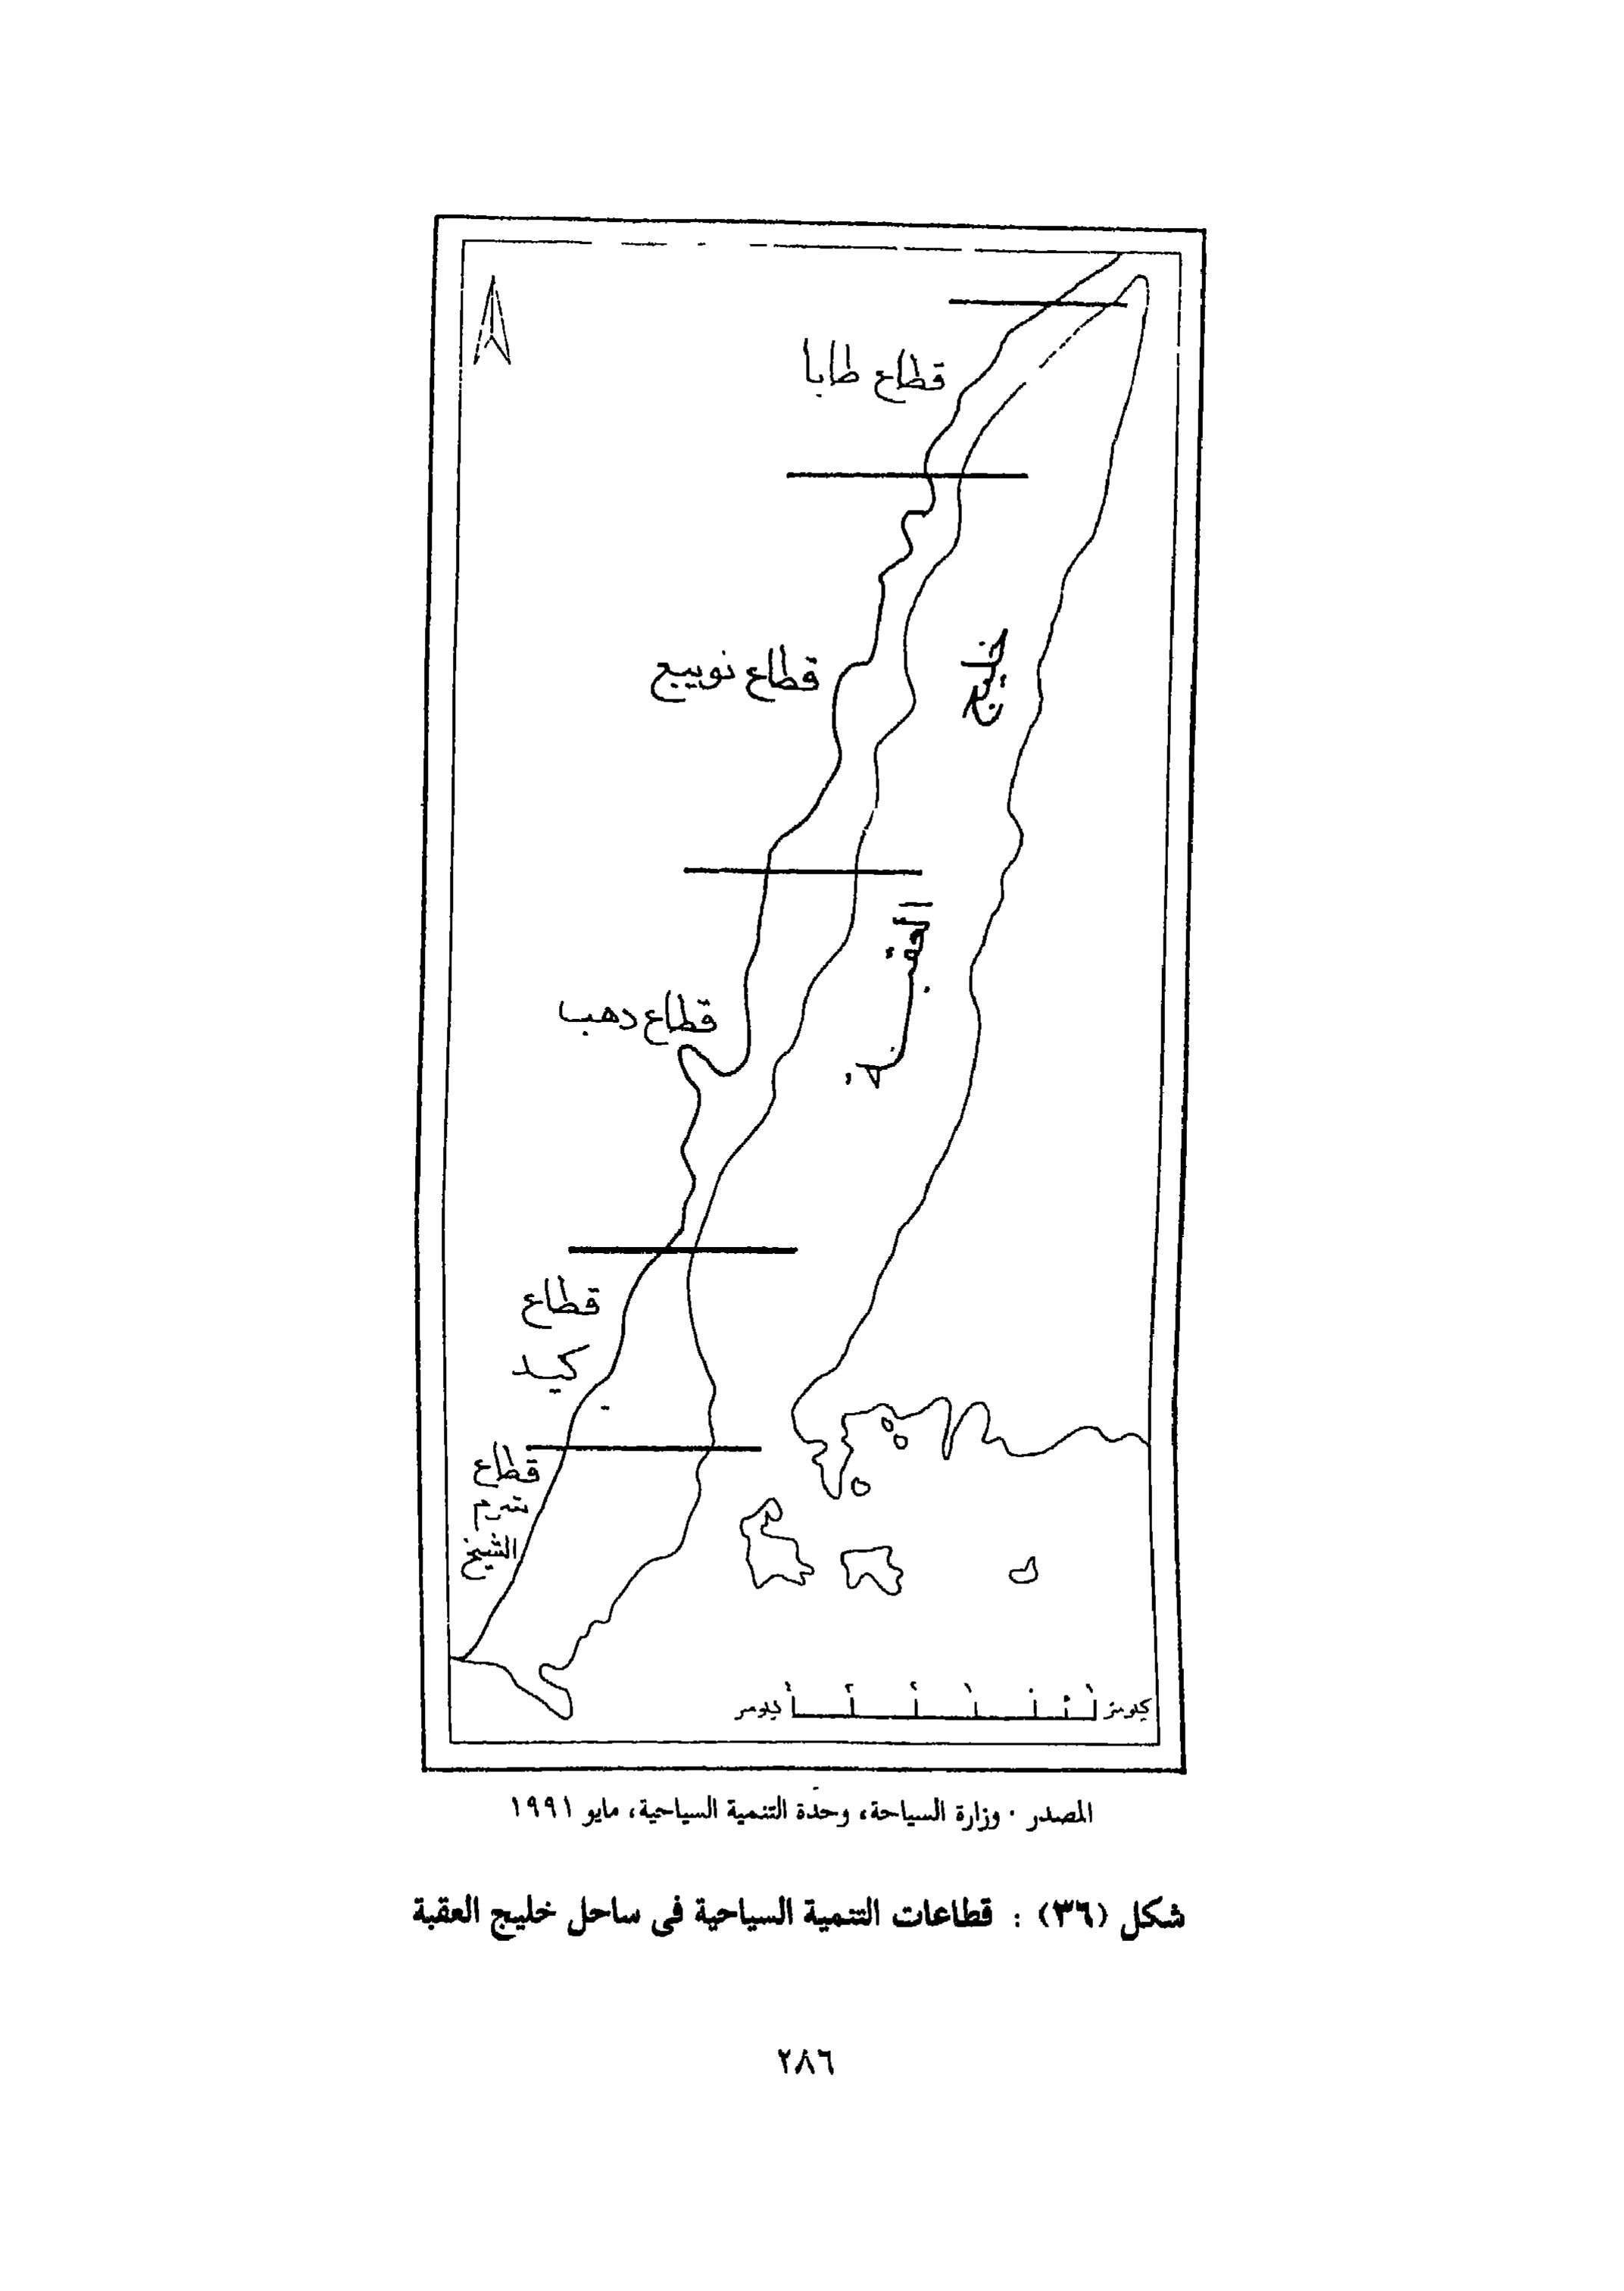 قطاع طابا
قطاع نويبع
خليج
العقبة
قطاع دهب
قطاع
كيد
قطاع
شرم
الشيخ
كيلومتر
كيلومتر
المصدر . وزارة السياحة، وحدة التنمية السياحية، مايو ١٩٩١
شكل (٣٦) : قطاعات التنمية السياحية فى ساحل خليج العقبة
٢٨٦